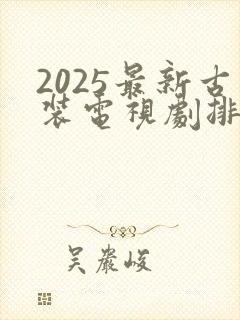 2025最新古
裝電視劇排
吴嚴峻